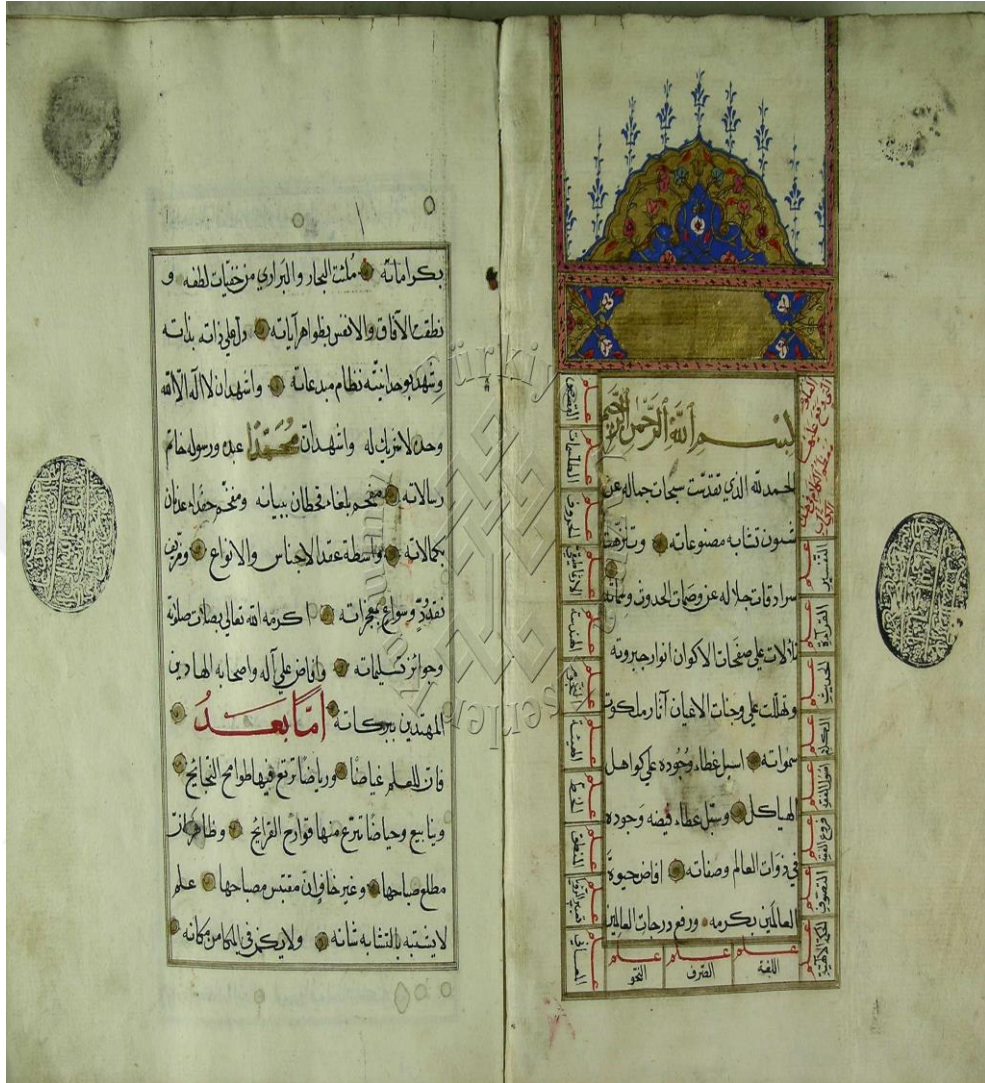 بسم الله الرحمن الرحيم
الحمد لله الذي تقدست سبحات جماله عن
شئون تشابه مصنوعاته وتنزهت
سرادقات جلاله عن وصمات الحدوث وسماته
تلألأت علي صفحات الاكوان انوار جبروته
وتهللت علي وجنات الاعيان آثار ملكوت
سمواته اسبل غطاء وجوده علي كواهل
الهياكل وسبل عطاء فيضه وجوده
في ذوات العالم وصفاته افاض حيوة
العالمين بكرمه ورفع درجات العالمين
علم التفسير
علم القراءة
علم الحديث
علم الكلام
علم اصول الفقه
علم فروع الفقه
علم التصوف
علم الحكمة الالهية
علم اللغة
علم الصرف
علم النحو
علم المعاني
علم تعبير الرؤيا
علم المنطق
علم الخط
علم الهيئة
علم النجوم
علم الهندسة
علم الارثماطيقي
علم الحروف
علم الطلسمات
علم
بكراماته ملئت البحار والبراري من خفيات لطفه و
نطقت الآفاق والانفس بظواهر آياته دل علي ذاته بذاته
وشهد بوحدانيته نظام مبدعاته واشهد ان لا اله الا الله
وحده لا شريك له واشهد ان محمدا عبده ورسوله خاتم
رسالاته مفحم بلغاء قحطان ببيانه ومفخم عدنان
بكمالاته واسطة عقد الاجناس والانواع
معجزاته اكرمه الله تعالي بصلات صلوته
وجوائز تسليماته وافاض علي آله واصحابه الهادين
المهتدين ببركاته اما بعد
فان للعلم غياضا ورياضا ترتع فيها طوامح
وينابيع وحياضا تترع منها قوارح القرايح وظاهر ان
مطلع صباحها وغير خاف ان مقتبس مصباحها علم
لا يشتبه بالتشابه شانه ولا يكمن في المكامن مكانه